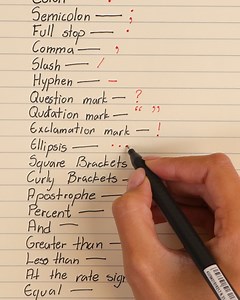 Colon — :
Semicolon — ;
Full stop — .
Comma — ,
Slash — /
Hyphen — -
Question mark — ?
Quotation mark — “ ”
Exclamation mark — !
Ellipsis — ...
Square Brackets
Curly Brackets —
Apostrophe —
Percent —
And —
Greater than —
Less than —
At the rate sign
Equal —